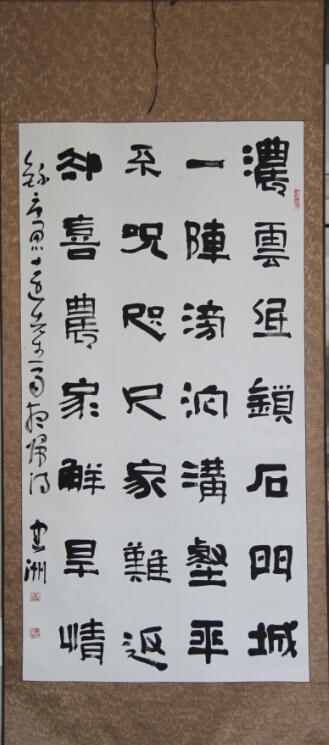 濃雲低鎖石門城
一陣滂沱溝壑平
不呪咫尺家難返
却喜農家解旱情
洲